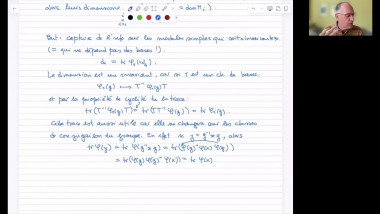 alors leurs dimensions
But : capture de l'info sur les modules simples qui soit invariante
(= qui ne dépend pas des bases !).
La dimension est un invariant, car si T est un ch. de bases
φ(g) ⟼ T⁻¹ φ(g) T
et par la propriété de cyclicité de la trace
tr (T⁻¹ φ(g) T) = tr (T T⁻¹ φ(g)) = tr φ(g).
Cela trace est aussi utile car elle est sur les classes
de conjugaison du groupe. En effet si y = g⁻¹ x g, alors
tr φ(y) = tr φ(g⁻¹ x g) = tr (φ(g)⁻¹ φ(x) φ(g))
= tr (φ(g) φ(g)⁻¹ φ(x)) = tr φ(x).